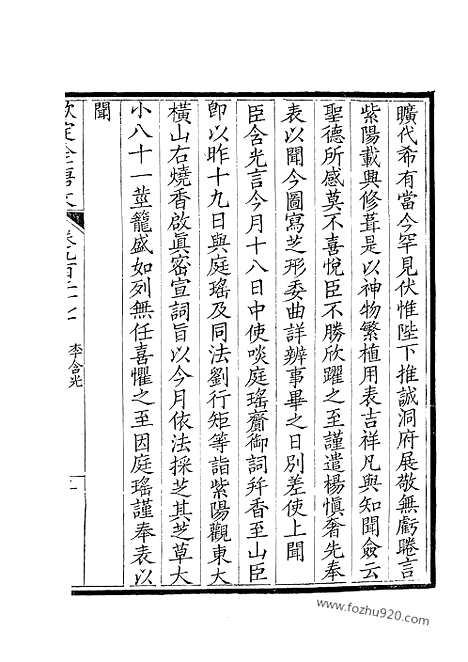 曠代希有當今罕見伏惟陛下推誠洞府展敬無虧睠言
紫陽載興修葺是以神物繁植用表吉祥凡與知聞僉云
聖德所感莫不喜悅臣不勝欣躍之至謹遣楊愼奢先奉
表以聞今圖寫芝形委曲詳辨事畢之日別差使上聞
臣含光言今月十八日中使啖庭瑤齎御詞幷香至山臣
卽以昨十九日與庭瑤及同法劉行矩等詣紫陽觀東大
橫山右燒香啟眞密宣詞旨以今月依法採芝其芝草大
小八十一莖籠盛如列無任喜懼之至因庭瑤謹奉表以
聞
欽定全唐文
卷九百二十七
李含光
www.fozhu920.com